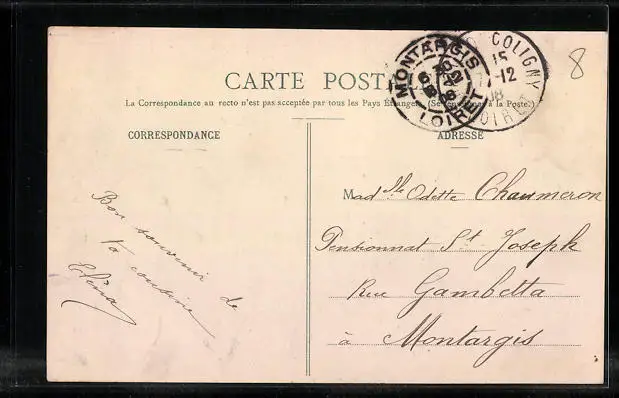 CARTE POSTALE
La Correspondance au recto n'est pas acceptée par tous les Pays Étrangers. (Se renseigner à la Poste.)
CORRESPONDANCE
ADRESSE
MONTARGIS
LOIRET
COLIGNY
15
12
08
LOIRET
8
Bon souvenir de
ta cousine
Eléna
Madlle Odette Chaumeron
Pensionnat St-Joseph
Rue Gambetta
à Montargis